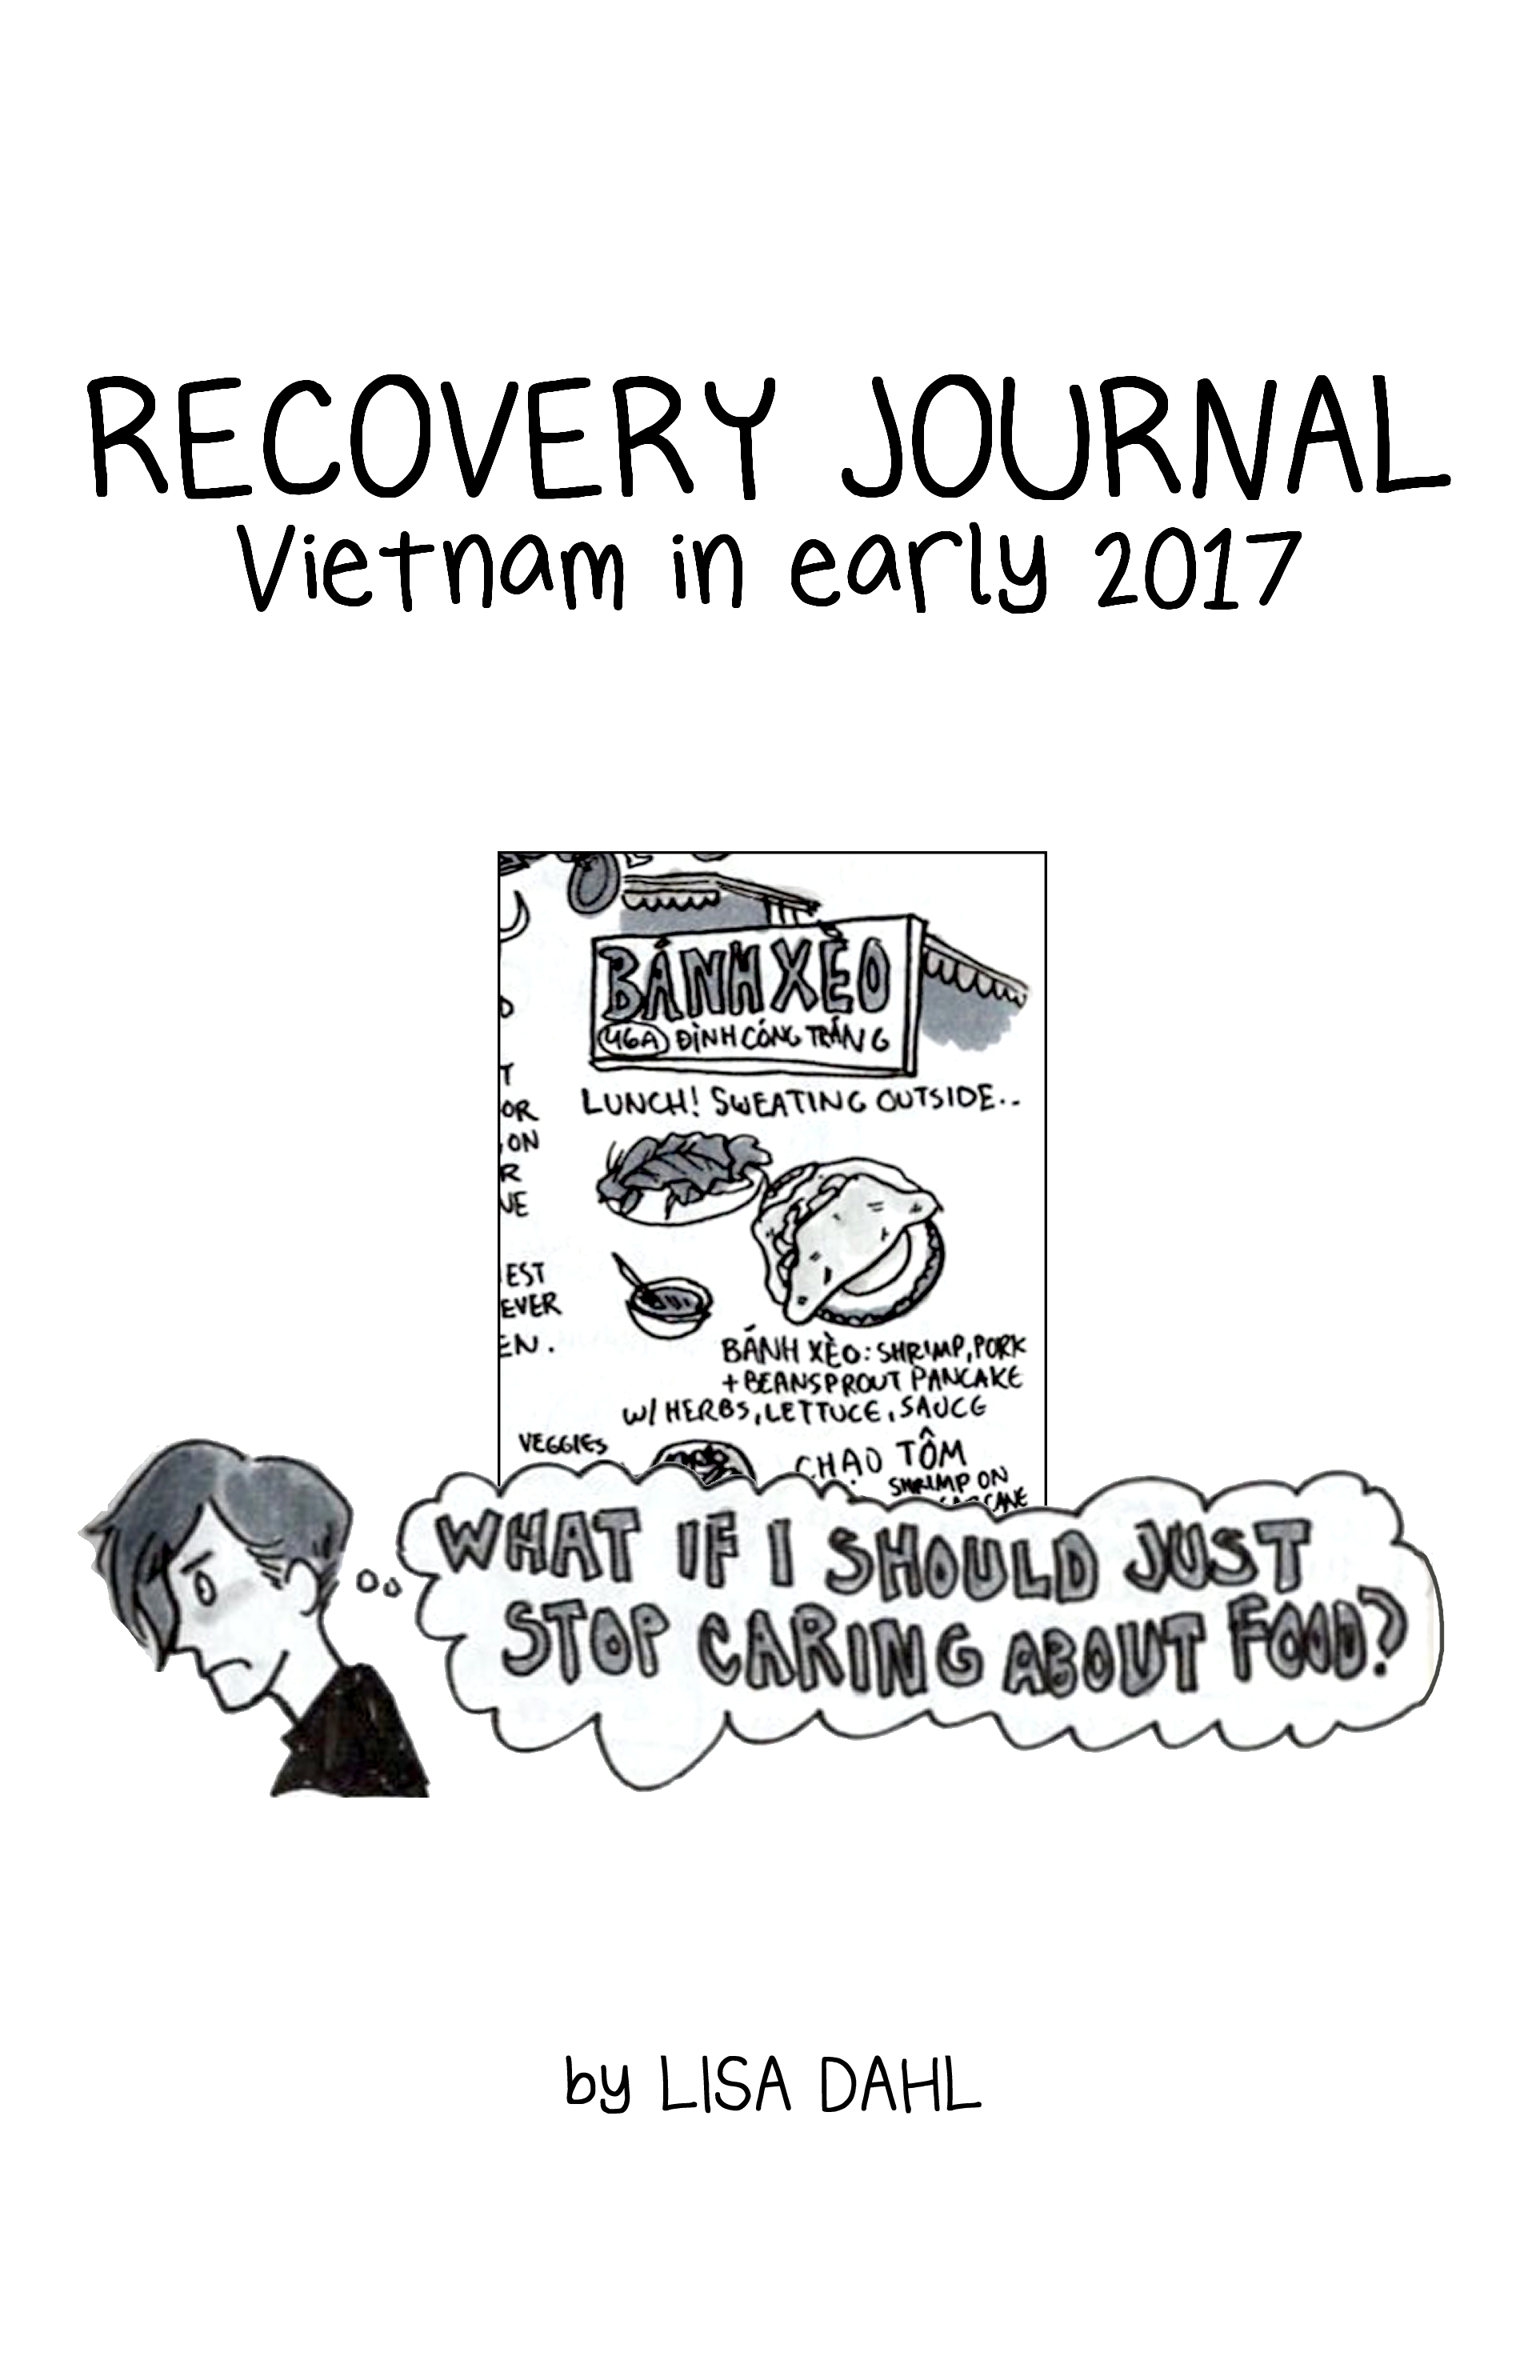 RECOVERY JOURNAL
Vietnam in early 2017
BÁNH XÈO
46A ĐÌNH CÔNG TRÁNG
LUNCH! SWEATING OUTSIDE..
T
OR
ON
R
EST
EVER
EN.
BÁNH XÈO: SHRIMP, PORK
+ BEANSPROUT PANCAKE
W/ HERBS, LETTUCE, SAUCE
VEGGIES
CHẠO TÔM
SHRIMP ON
WHAT IF I SHOULD JUST
STOP CARING ABOUT FOOD?
by LISA DAHL